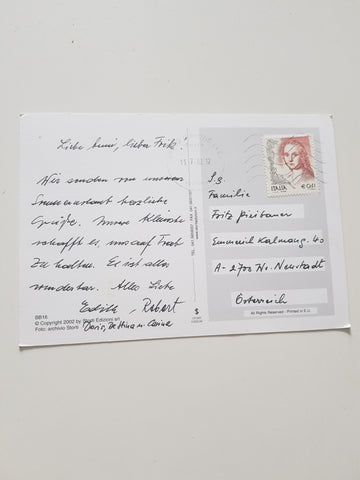 Liebe Anni, lieber Fritz!
Wir senden von unserem
Sommerurlaub herzliche
Grüße. Unsere Kleinste
schafft es, uns auf Trab
zu halten. Es ist alles
wunderbar. Alles Liebe
Edith, Robert
Doris, Bettina u. Carina
BB16
© Copyright 2002 by Storti Edizioni srl
Foto: archivio Storti
$
ITALIA € 0,41
S.g.
Familie
Fritz
Emmerich Kalmang. 40
A-2700 Wr. Neustadt
Österreich
All Rights Reserved - Printed in E.U.